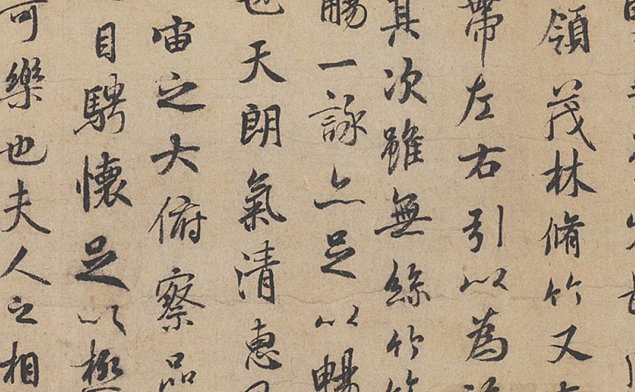 領茂林脩竹又
帶左右引以為
其次雖無絲竹
觴一詠亦足以暢
也天朗氣清惠
宙之大俯察品
目騁懷足以極
可樂也夫人之相